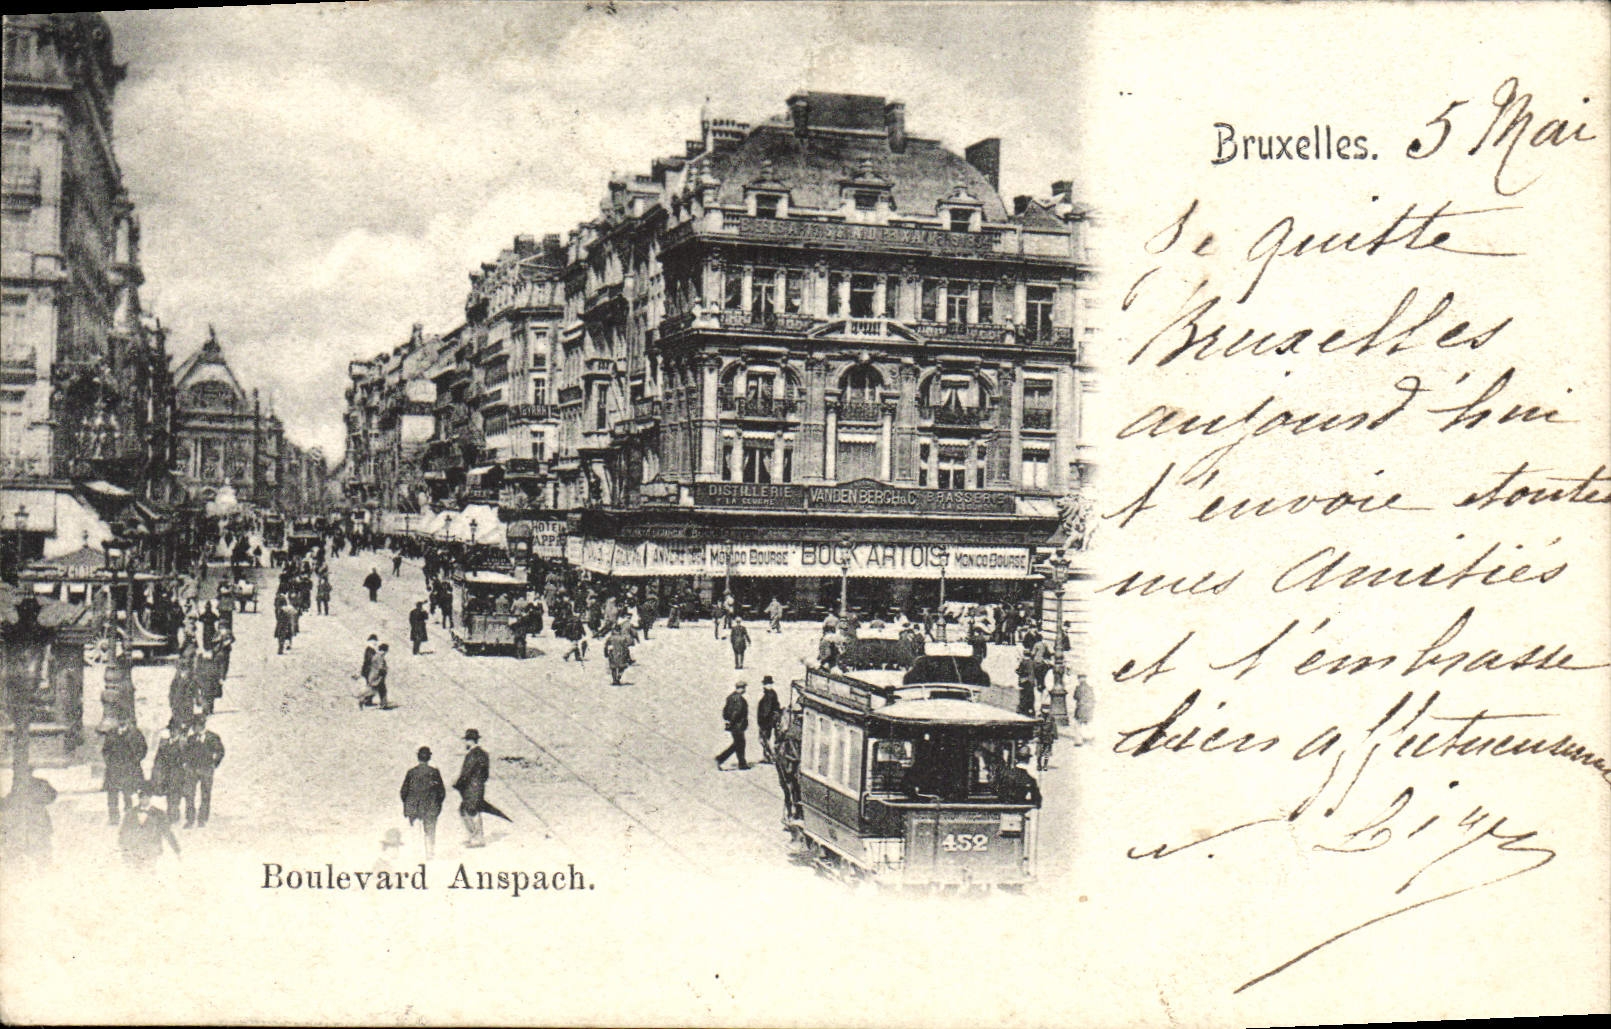 Bruxelles. 5 Mai
Je quitte
Bruxelles
aujourd'hui
t'envoie toutes
mes Amitiés
et t'embrasse
bien affectueuseme
DISTILLERIE VANDEN BERGH & C BRASSERIE
HOTEL
MONICO BOURSE BOCK ARTOIS MONICO BOURSE
452
Boulevard Anspach.